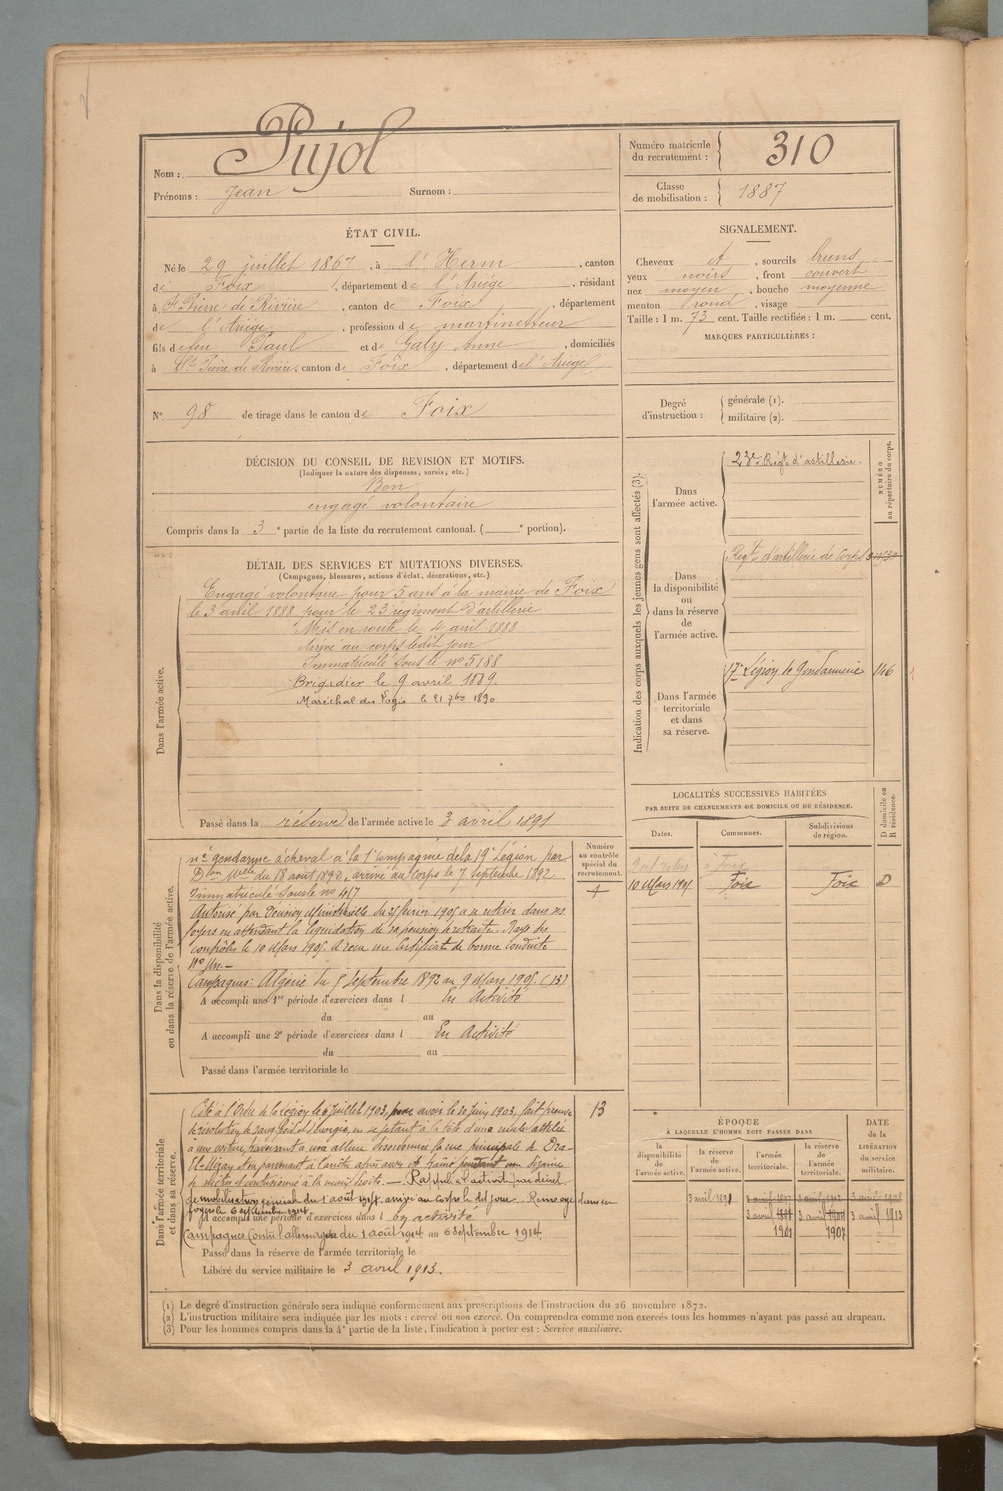 Pujol
Nom :
Prénoms : Jean Surnom :
Numéro matricule
du recrutement : 310
Classe
de mobilisation : 1887
ÉTAT CIVIL.
Né le 29 juillet 1867, à l'Herm, canton
de Foix, département de l'Ariège, résidant
à St Pierre de Rivière, canton de Foix, département
de l'Ariège, profession de martinetteur
fils de feu Paul et de Galy Anne, domiciliés
à St Pierre de Rivière, canton de Foix, département de l'Ariège
N° 98 de tirage dans le canton de Foix
SIGNALEMENT.
Cheveux et, sourcils bruns
yeux noirs, front couvert
nez moyen, bouche moyenne
menton rond, visage
Taille : 1 m. 73 cent. Taille rectifiée : 1 m. cent.
MARQUES PARTICULIÈRES :
Degré
d'instruction :
générale (1).
militaire (2).
DÉCISION DU CONSEIL DE REVISION ET MOTIFS.
(Indiquer la nature des dispenses, sursis, etc.)
Bon
engagé volontaire
Compris dans la 3e partie de la liste du recrutement cantonal. ( e portion).
DÉTAIL DES SERVICES ET MUTATIONS DIVERSES.
(Campagnes, blessures, actions d'éclat, décorations, etc.)
Dans l'armée active.
Engagé volontaire pour 5 ans à la mairie de Foix
le 3 avril 1888 pour le 23 régiment d'artillerie
Mis en route le 4 avril 1888
Arrivé au corps ledit jour
Immatriculé sous le n° 5188
Brigadier le 9 avril 1889.
Maréchal des Logis le 21 7bre 1890
Passé dans la réserve de l'armée active le 3 avril 1891
Indication des corps auxquels les jeunes gens sont affectés (3).
NUMÉRO
au répertoire du corps.
Dans
l'armée active.
23e Régt d'artillerie.
Dans
la disponibilité
ou
dans la réserve
de
l'armée active.
Régt d'artillerie de Corps
Dans l'armée
territoriale
et dans
sa réserve.
17e Légion de Gendarmerie 146
Dans la disponibilité
ou dans la réserve de l'armée active.
Numéro
au contrôle
spécial du
recrutement.
né gendarme à cheval à la 1e Compagnie de la 19e Légion par
Don Melle du 18 août 1892, arrivé au Corps le 7 Septembre 1892
Immatriculé sous le n° 417
Autorisé par Décision Ministérielle du février 1905 à se retirer dans ses
foyers en attendant la liquidation de sa pension de retraite. Rayé des
contrôles le 10 Mars 1905. A reçu un certificat de bonne conduite
Campagnes: Algérie du 5 Septembre 1892 au 9 Mars 1905. (13)
A accompli une 1re période d'exercices dans l En Activité
du au
A accompli une 2e période d'exercices dans l En Activité
du au
Passé dans l'armée territoriale le
LOCALITÉS SUCCESSIVES HABITÉES
PAR SUITE DE CHANGEMENTS DE DOMICILE OU DE RÉSIDENCE.
Dates. Communes. Subdivisions
de région.
D domicile ou
R résidence.
10 Mars 1905 Foix Foix D
Dans l'armée territoriale
et dans sa réserve.
Cité à l'Ordre de la Légion le 6 juillet 1903, pour avoir le 20 Juin 1903, fait preuve 13
de résolution, de sang froid et d'énergie, en se jetant à la tête d'une mule attelée
à une voiture, traversant à une allure désordonnée la rue principale de
en parvenant à l'arrêter après avoir été traîné pendant une dizaine
de mètres et contusionné à la main droite. — Rappelé à l'activité par décret
de mobilisation générale du 1 août 1914. arrivé au corps le dit jour. Renvoyé dans ses
foyers le 6 septembre 1914
A accompli une période d'exercices dans l en activité
Campagnes Contre l'allemagne du 1 août 1914 au 6 Septembre 1914.
Passé dans la réserve de l'armée territoriale le
Libéré du service militaire le 3 avril 1913.
ÉPOQUE
À LAQUELLE L'HOMME DOIT PASSER DANS
la
disponibilité
de
l'armée active.
la réserve
de
l'armée active.
l'armée
territoriale.
la réserve
de
l'armée
territoriale.
DATE
de la
LIBÉRATION
du service
militaire.
3 avril 1891 3 avril 1897
3 avril 3 avril 3 avril 1913
1901 1907
(1) Le degré d'instruction générale sera indiqué conformément aux prescriptions de l'instruction du 26 novembre 1872.
(2) L'instruction militaire sera indiquée par les mots : exercé ou non exercé. On comprendra comme non exercés tous les hommes n'ayant pas passé au drapeau.
(3) Pour les hommes compris dans la 4e partie de la liste, l'indication à porter est : Service auxiliaire.